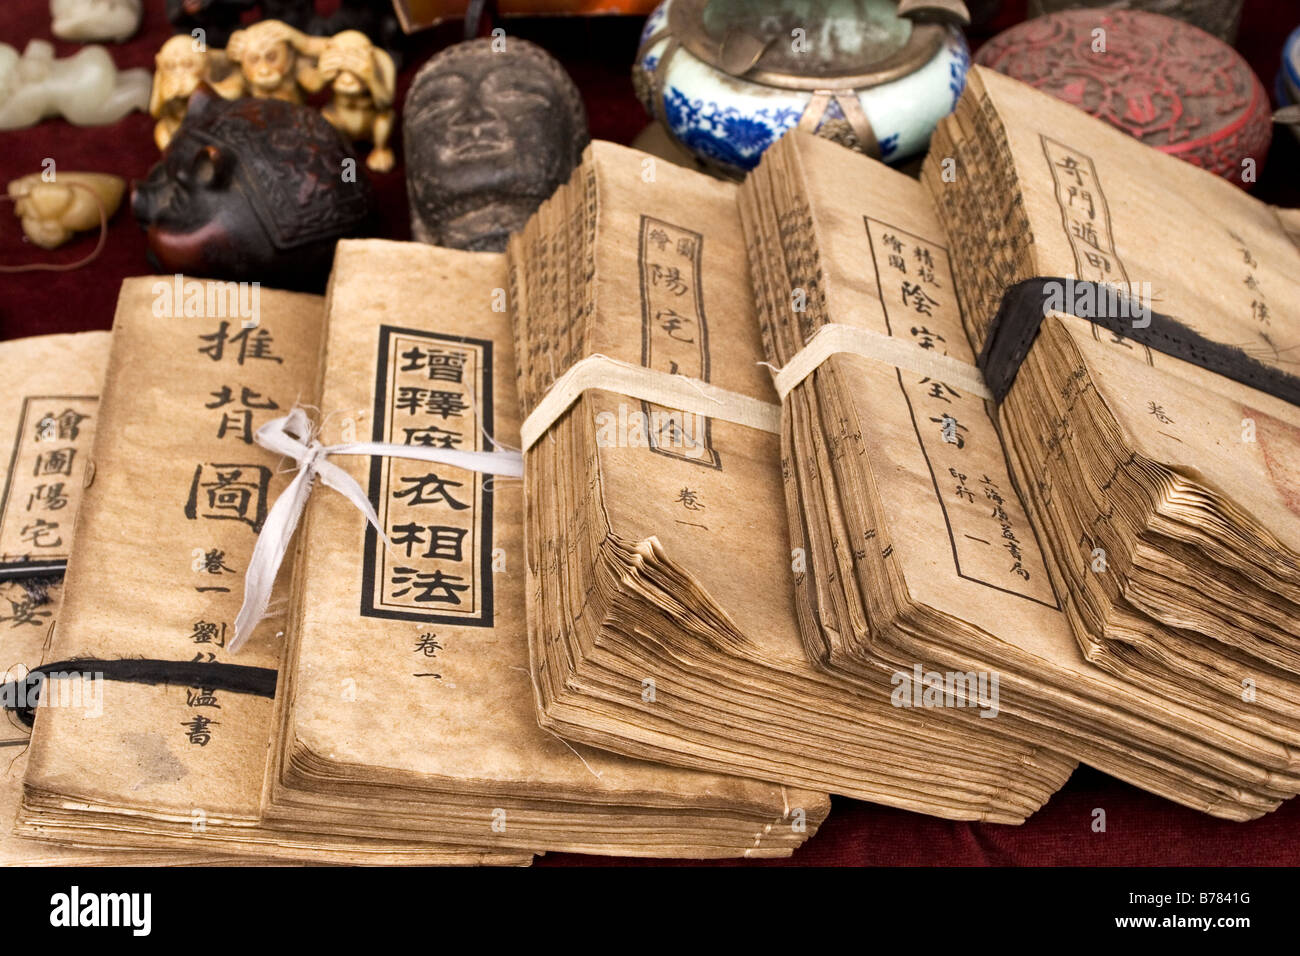 繪圖陽宅
推背圖
卷一
劉伯溫書
增釋麻衣相法
卷一
繪圖
陽宅大全
卷一
精校
繪圖
陰宅全書
上海廣益書局
印行
一
奇門遁甲
卷一
alamy
Image ID: B7841G
www.alamy.com